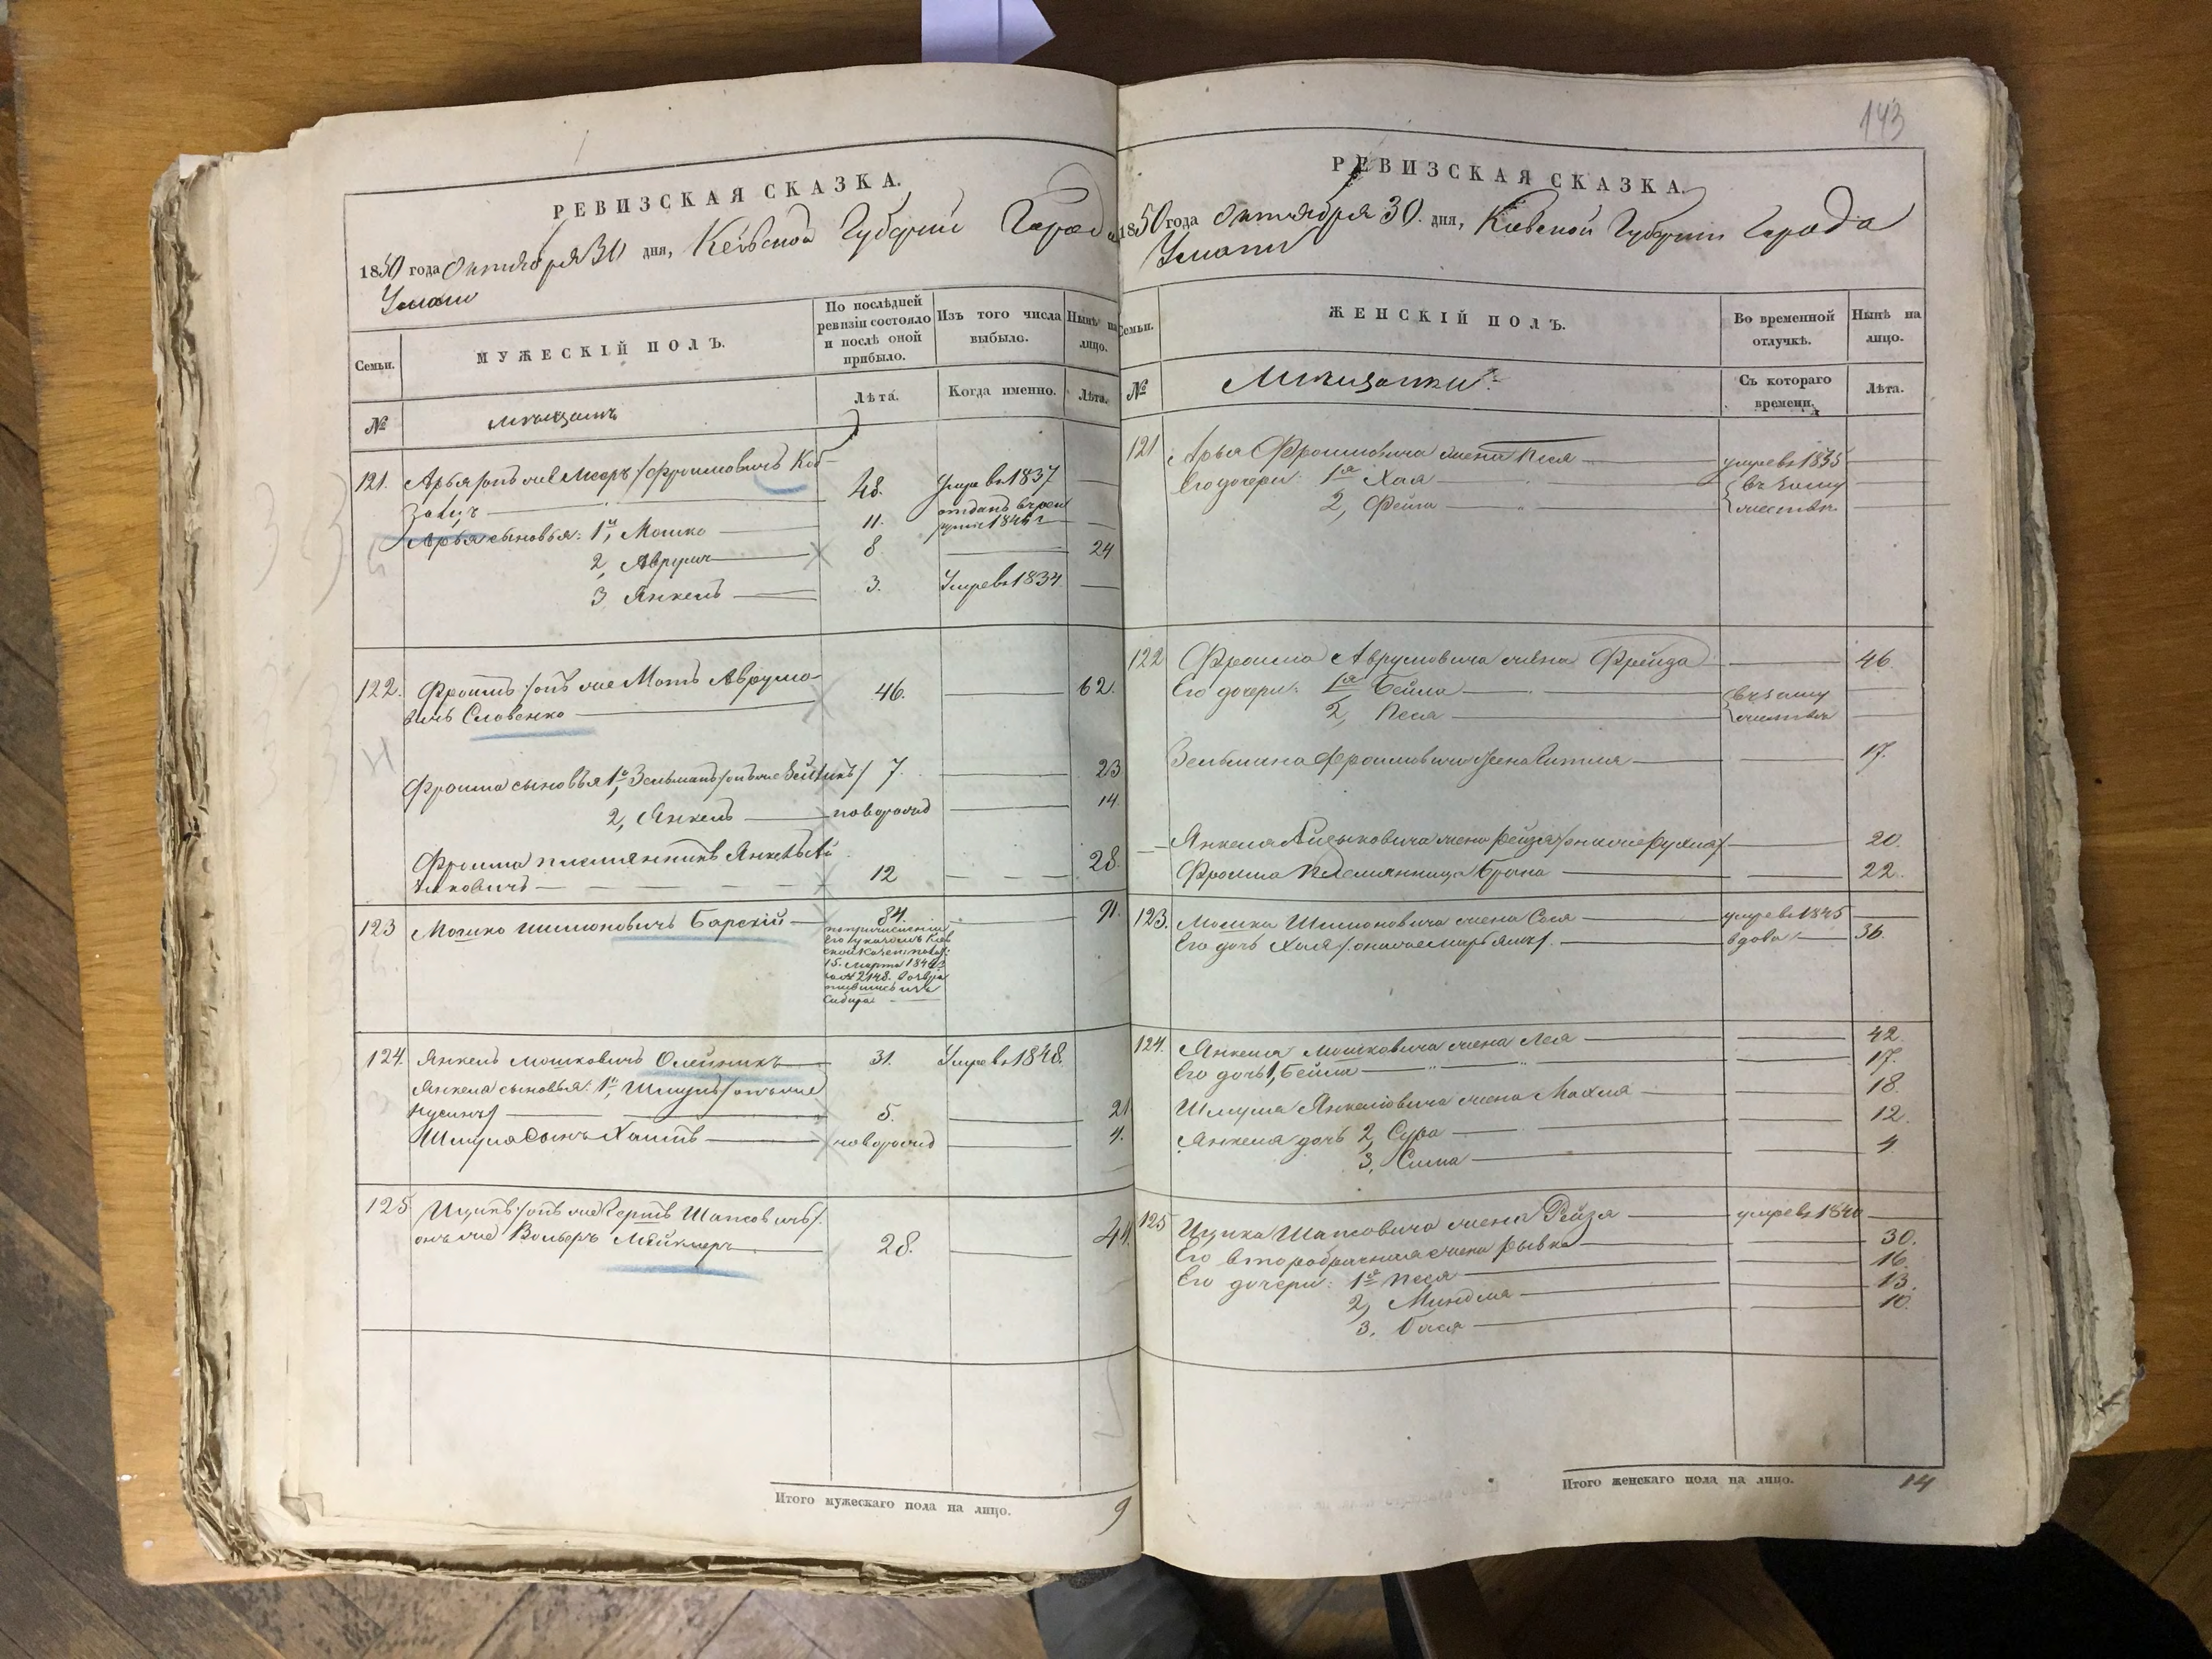 РЕВИЗСКАЯ СКАЗКА.
1850 года Октября 30 дня, Кіевской Губерніи Города
Умани
Семьи.
МУЖЕСКІЙ ПОЛЪ.
По послѣдней ревизіи состояло и послѣ оной прибыло.
Изъ того числа выбыло.
Нынѣ на лицо.
№
мѣщанъ
Лѣта.
Когда именно.
Лѣта.
121. Арья /онъ же Меоръ/ Фроимовичъ Коб-
48. Умре въ 1837
Арья сыновья: 1й, Мошко 11. отданъ въ рек
руты 1846 г
2, Аврумъ 8. 24
3 Янкель 3. Умре въ 1834.
122. Фроимъ /онъ же Мотъ Аврумо-
вичъ Словенко 46. 62.
Фроима сыновья 1й, Зельманъ /онъ же Зейликъ/ 7. 23
2, Янкель новорожд 14.
Фроима племянникъ Янкель Ай
зиковичъ 12 28
123 Мошко Шимоновичъ Барскій 84. 91.
по причисленіи
15. Марта 1849
за № 2148.
Сибири
124. Янкель Мошковичъ Олейникъ 31. Умре въ 1848.
Янкеля сыновья: 1й, Шмуль /онъ же
Нусинъ/ 5. 21
Шмуля сынъ Хаимъ новорожд 4.
125 Ицикъ /онъ же Бершъ Шапсовичъ/
онъ же Вольберъ 28. 44
Итого мужескаго пола на лицо. 9
143
РЕВИЗСКАЯ СКАЗКА.
1850 года Октября 30. дня, Кіевской Губерніи Города
Умани
Семьи.
ЖЕНСКІЙ ПОЛЪ.
Во временной отлучкѣ.
Нынѣ на лицо.
№
Мѣщанки
Съ котораго времени.
Лѣта.
121 Арья Фроимовича жена Песя умре въ 1835
Его дочери: 1я Хая въ заму
2, Фейга жествѣ
122 Фроима Аврумовича жена Фрейда 46.
Его дочери: 1я Бейла въ заму
2, Песя жествѣ
Зельмана Фроимовича жена Гитля 17.
Янкеля Айзыковича жена Рейзя /она же Рухля/ 20.
Фроима племянница Брана 22.
123. Мошка Шимоновича жена Сося умре въ 1845
Его дочь Хая /она же Марьямъ/ вдова 36.
124. Янкеля Мошковича жена Лея 42.
Его дочь 1, Бейла 17.
Шмуля Янкелевича жена Махля 18.
Янкеля дочь 2, Сура 12.
3, Сима 4
125 Ицика Шапсовича жена Рейзя умре въ 1840
Его второбрачная жена Рывка 30.
Его дочери: 1я Песя 16.
2, Миндля 13.
3. Бася 10.
Итого женскаго пола на лицо. 14